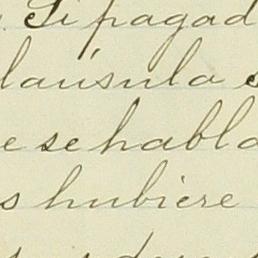 Si pagad
laúsula s
e se habla
s hubiere